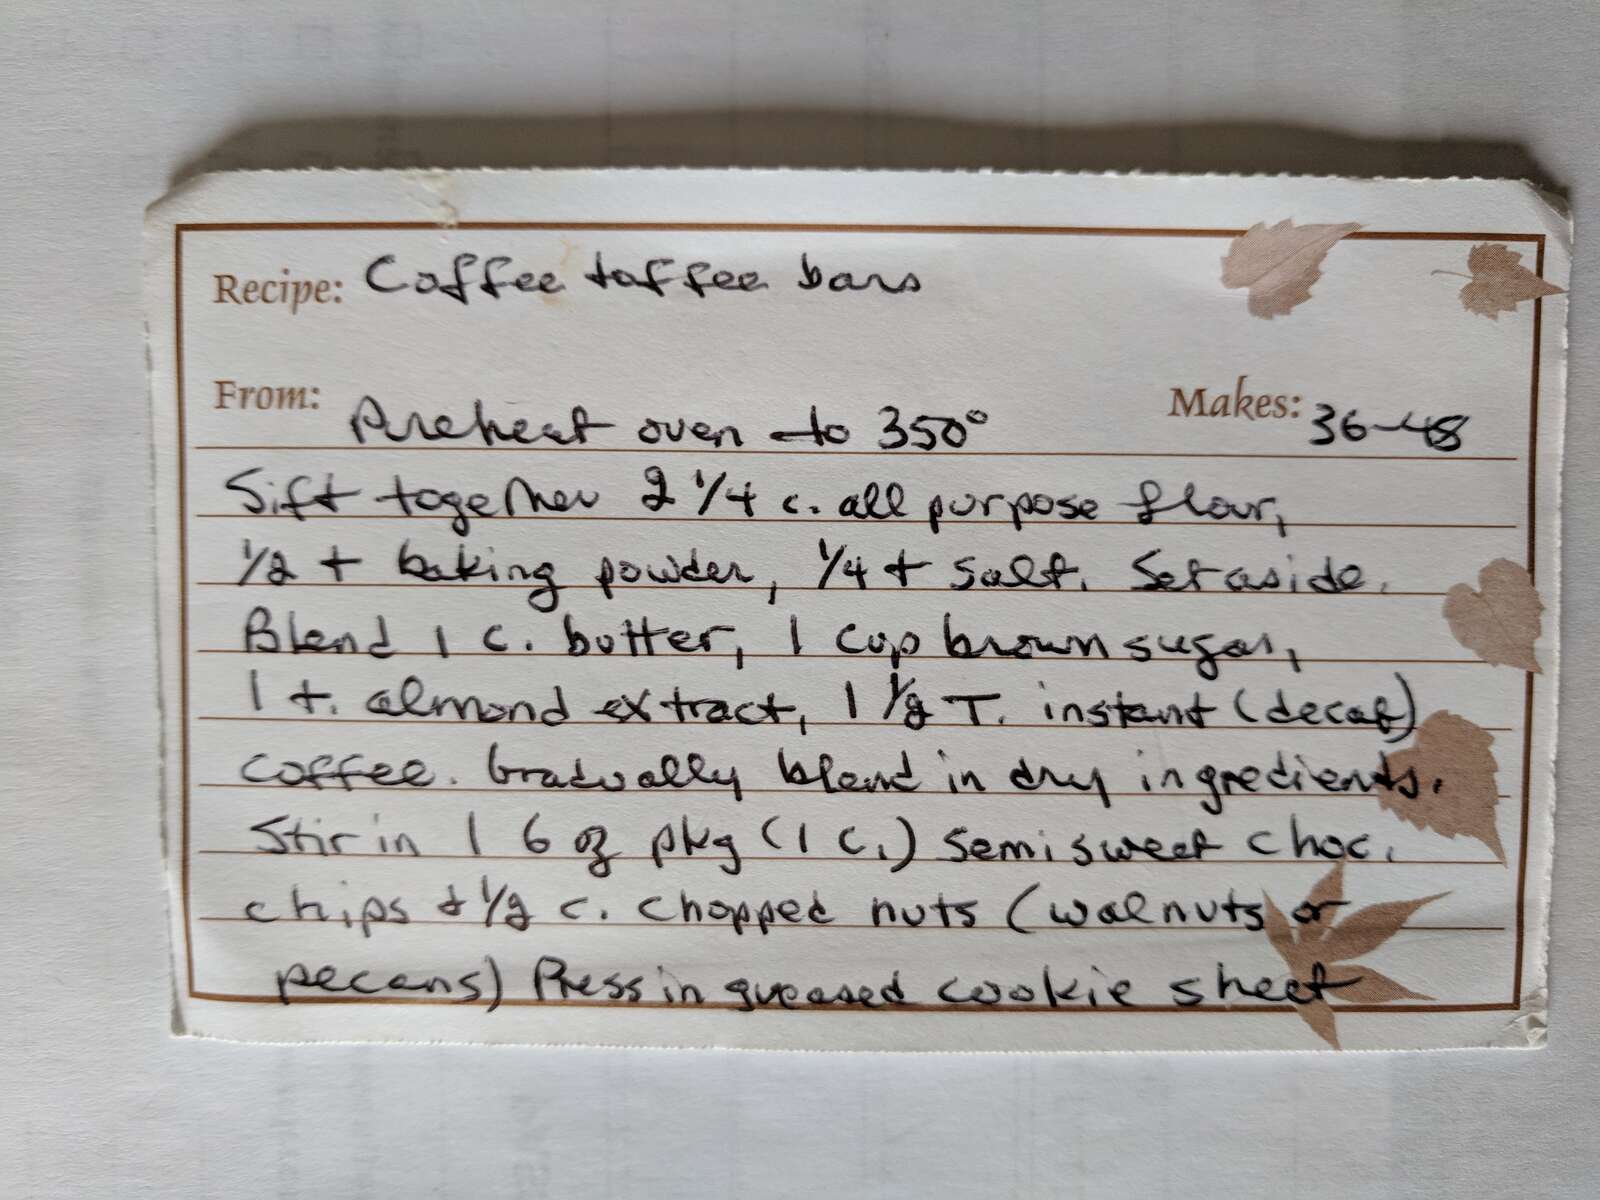 Recipe: Coffee toffee bars
From: Makes: 36-48
Preheat oven to 350°
Sift together 2 1/4 c. all purpose flour,
1/2 t baking powder, 1/4 t salt. Set aside.
Blend 1 c. butter, 1 cup brown sugar,
1 t. almond extract, 1 1/2 T. instant (decaf)
coffee. Gradually blend in dry ingredients.
Stir in 1 6 oz pkg (1 c.) semisweet choc.
chips & 1/2 c. chopped nuts (walnuts or
pecans) Press in greased cookie sheet